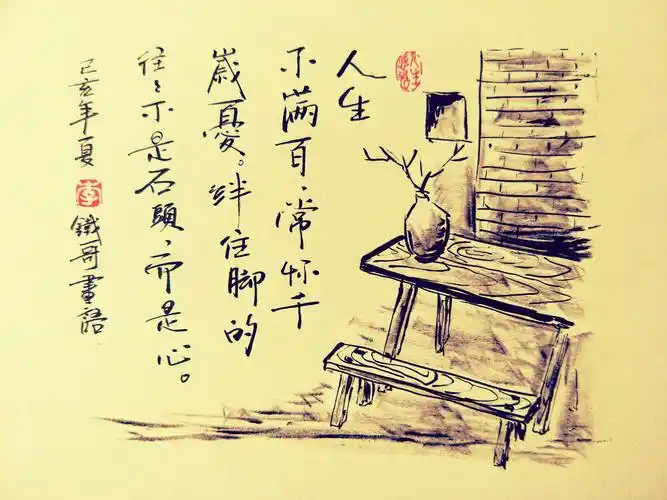 人生
不滿百，常怀千
歲憂。絆住脚的
往々不是石頭，而是心。
己亥年夏
李
鐵哥畫語